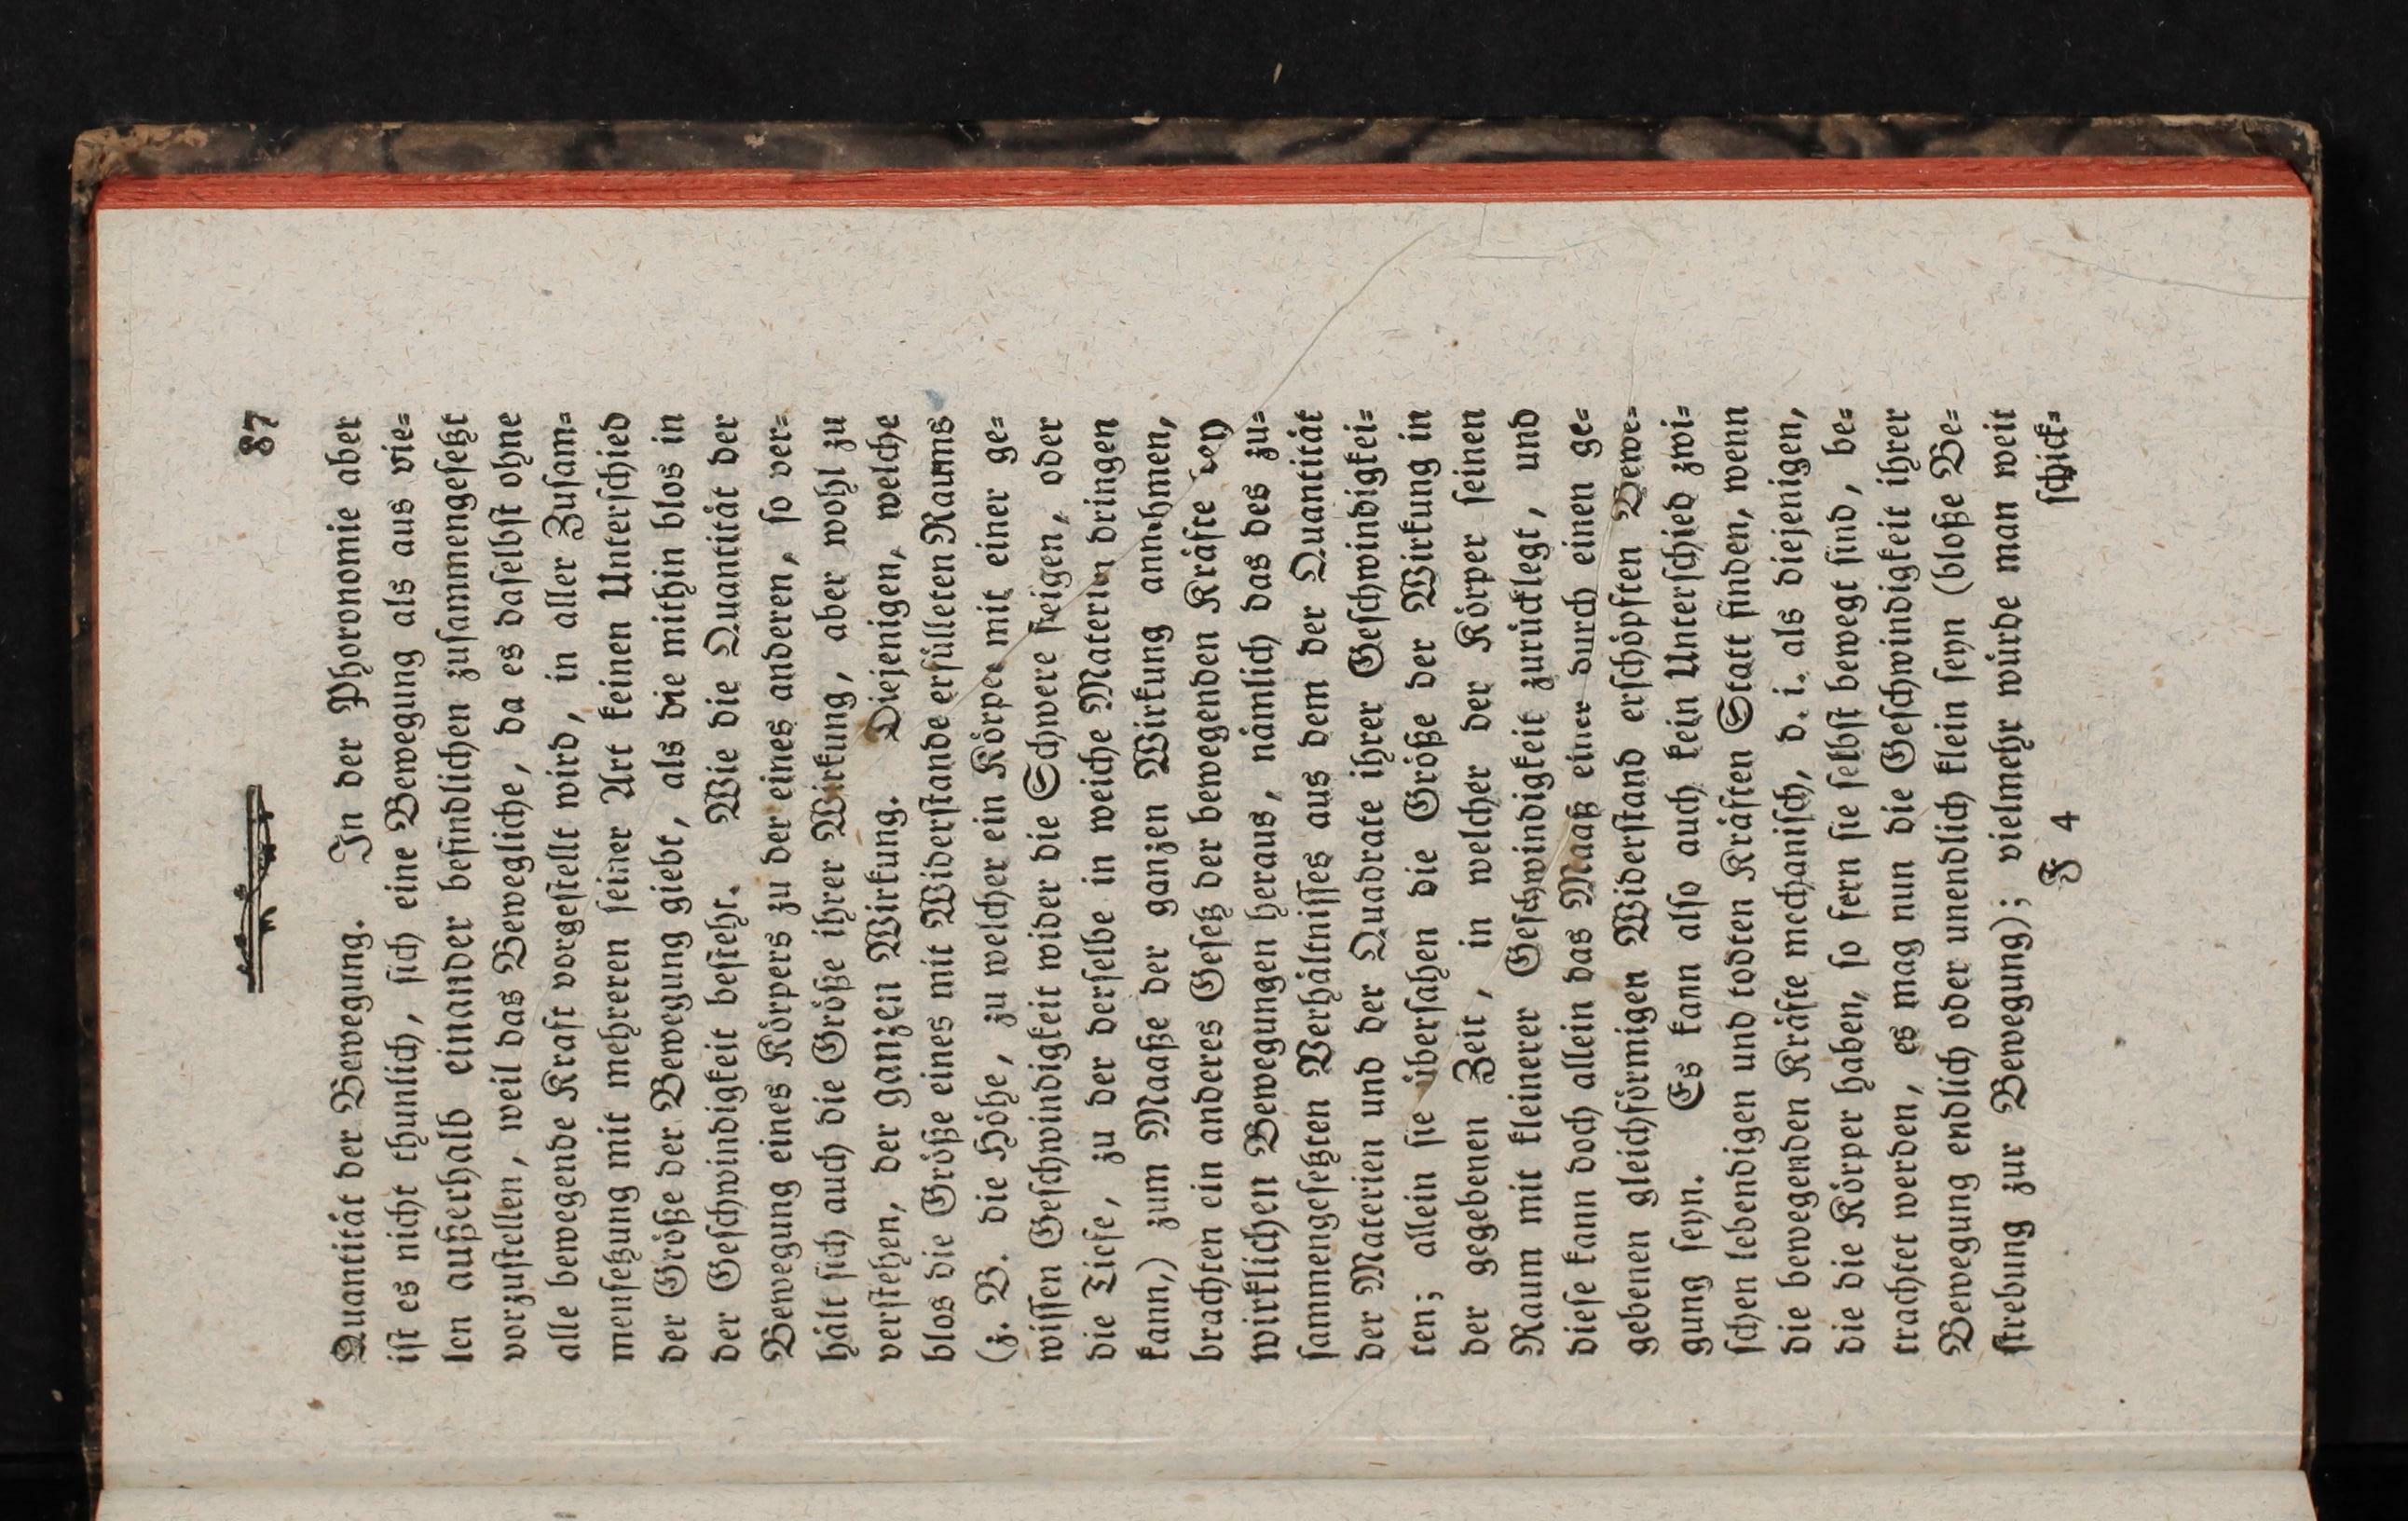 87
Quantität der Bewegung. In der Phoronomie aber
iſt es nicht thunlich, ſich eine Bewegung als aus vie⸗
len außerhalb einander befindlichen zuſammengeſetzt
vorzuſtellen, weil das Bewegliche, da es daſelbſt ohne
alle bewegende Kraft vorgeſtellt wird, in aller Zuſam⸗
menſetzung mit mehreren ſeiner Art keinen Unterſchied
der Größe der Bewegung giebt, als die mithin blos in
der Geſchwindigkeit beſteht. Wie die Quantität der
Bewegung eines Körpers zu der eines anderen, ſo ver⸗
hält ſich auch die Größe ihrer Wirkung, aber wohl zu
verſtehen, der ganzen Wirkung. Diejenigen, welche
blos die Größe eines mit Widerſtande erfülleten Raums
(z. B. die Höhe, zu welcher ein Körper mit einer ge⸗
wiſſen Geſchwindigkeit wider die Schwere ſteigen, oder
die Tiefe, zu der derſelbe in weiche Materien dringen
kann,) zum Maaße der ganzen Wirkung annehmen,
brachten ein anderes Geſetz der bewegenden Kräfte bey
wirklichen Bewegungen heraus, nämlich das des zu⸗
ſammengeſetzten Verhältniſſes aus dem der Quantität
der Materien und der Quadrate ihrer Geſchwindigkei⸗
ten; allein ſie überſahen die Größe der Wirkung in
der gegebenen Zeit, in welcher der Körper ſeinen
Raum mit kleinerer Geſchwindigkeit zurücklegt, und
dieſe kann doch allein das Maaß einer durch einen ge⸗
gebenen gleichförmigen Widerſtand erſchöpften Bewe⸗
gung ſeyn. Es kann alſo auch kein Unterſchied zwi⸗
ſchen lebendigen und todten Kräften Statt finden, wenn
die bewegenden Kräfte mechaniſch, d. i. als diejenigen,
die die Körper haben, ſo fern ſie ſelbſt bewegt ſind, be⸗
trachtet werden, es mag nun die Geſchwindigkeit ihrer
Bewegung endlich oder unendlich klein ſeyn (bloße Be⸗
ſtrebung zur Bewegung); vielmehr würde man weit
F 4 ſchick⸗